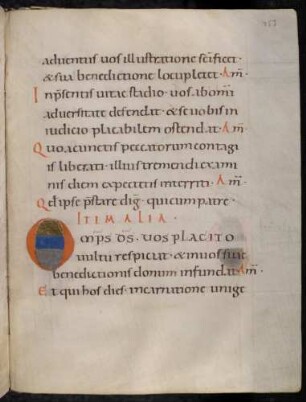 adventus vos illustratione sc̄ificet·
& sua benedictione locupletet· Am̄·
In p̄sentis vitae stadio· vos ab om̄i
adversitate defendat· & se vobis in
iudicio placabilem ostendat· Am̄·
Quo a cunctis peccatorum contagi
is liberati· illius tremendi exami
nis diem expectetis interriti· Am̄·
Qd ipse p̄stare dig̅· qui cum patre·
ITEM ALIA·
OMP̄S D̄S· VOS PLACITO
vultu respiciat· & in vos suae
benedictionis donum infundat· Am̄·
Et qui hos dies· incarnatione unige